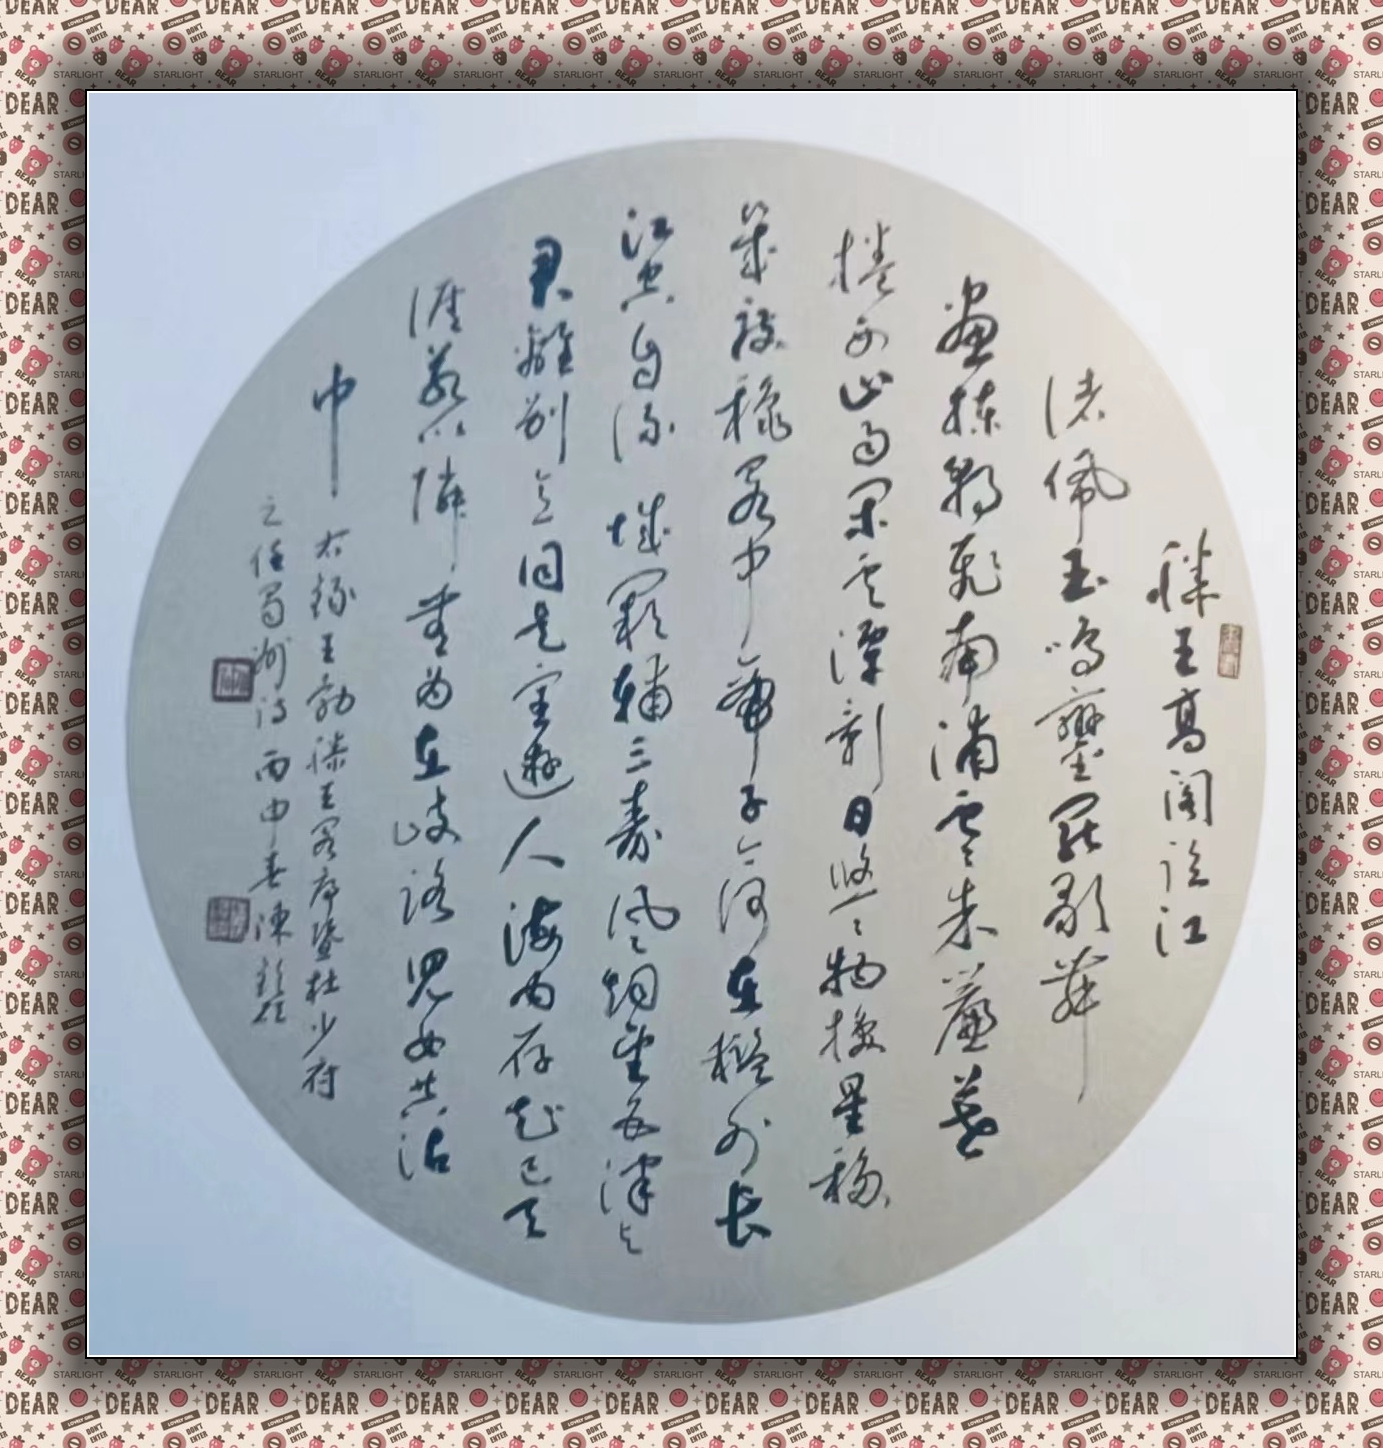 滕王高阁临江
渚佩玉鸣鸾罷歌舞
畫栋朝飛南浦云朱簾暮
捲西山雨闲云潭影日悠〻物换星移
幾度秋阁中帝子今何在檻外长
江空自流城阙辅三秦风烟望五津与
君離别意同是宦遊人海内存知己天
涯若比隣無为在歧路児女共沾
巾
右録王勃滕王阁序暨杜少府
之任蜀州诗丙申春陳